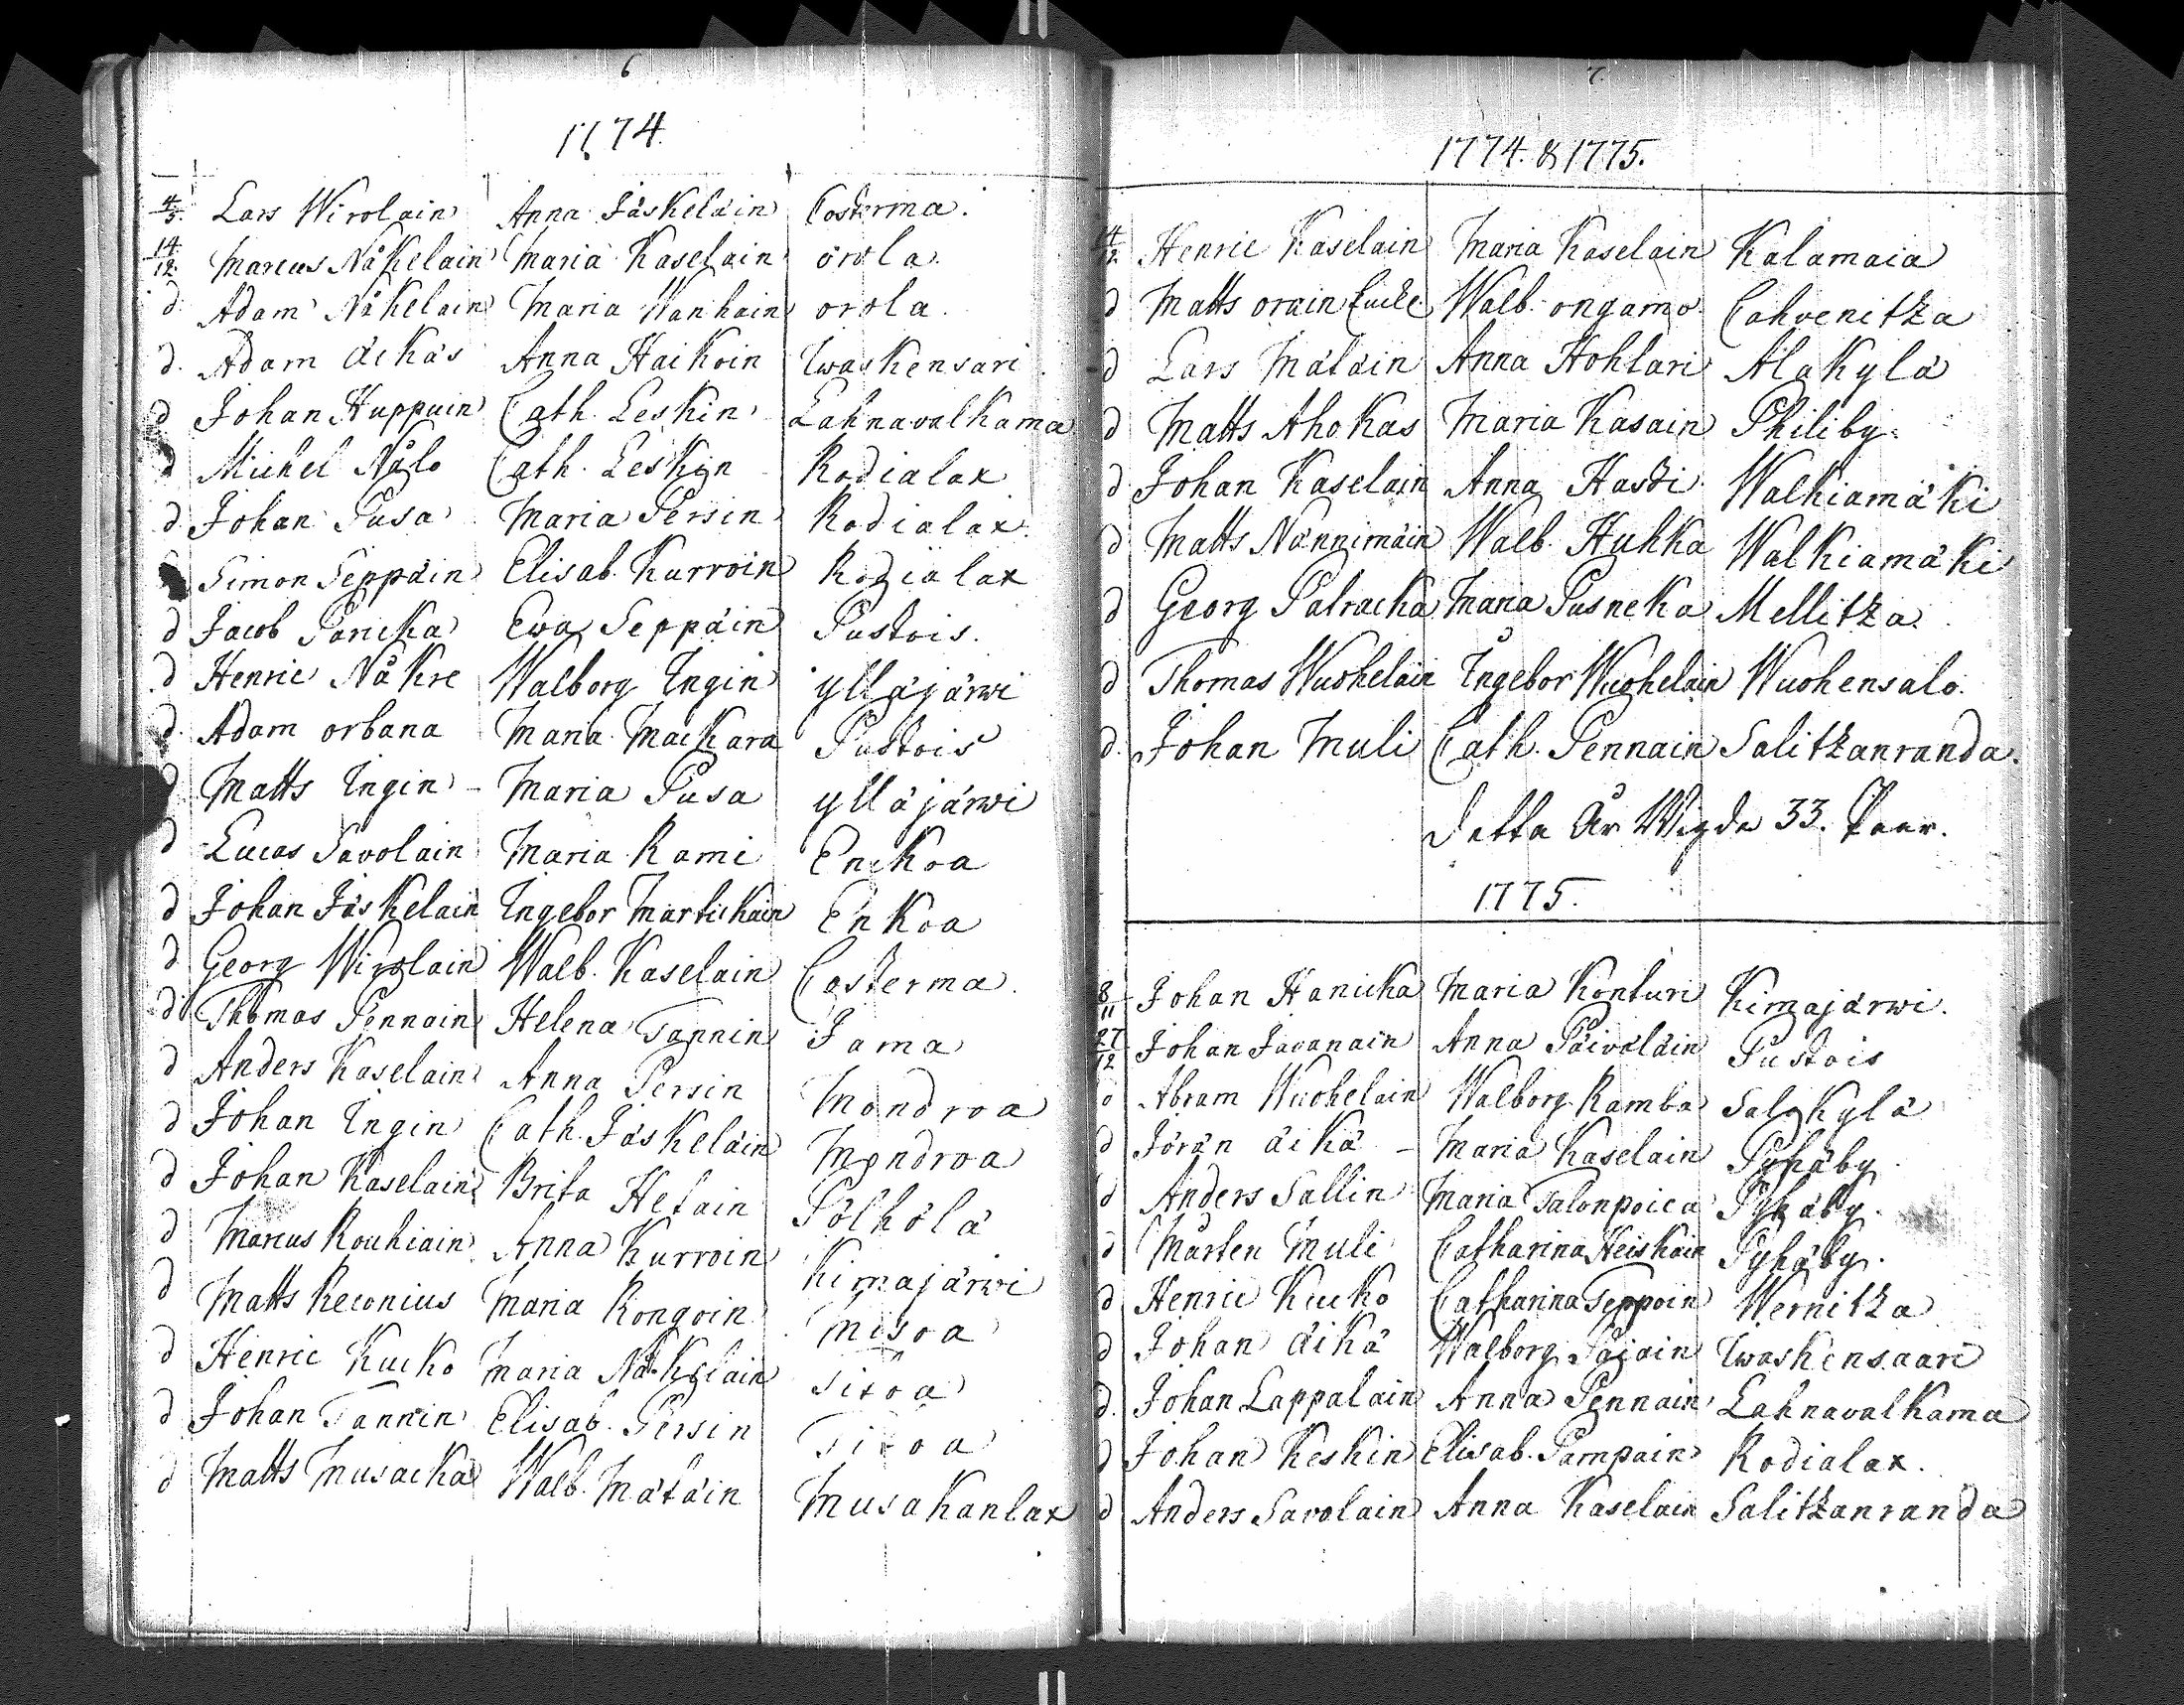 6
1774.
4/3 Lars Wirolain Anna Jäskeläin Costerma.
14/12 Marcus Nåkelain Maria Kaselain orola.
d Adam Nåkelain Maria Wanhain orola.
d. Adam äikäs Anna Haikoin Iwaskensari.
d Johan Huppuin Cath. Leskin Lahnavalkama
d Michel Nålo Cath. Leskin Rodialax
d Johan Pusa Maria Persin Rodialax.
Simon Seppäin Elisab. Kurroin Rodialax
d Jacob Paricka Ewa Seppäin Pustois.
d Henric Nåkre Walborg Ingin ylläjärwi
d Adam orbana Maria Mackara Pustois
d Matts Ingin - Maria Pusa ylläjärwi
d Lucas Savolain Maria Rami Enckoa
d Johan Jäskelain Ingebor Martickain Enkoa
d Georg Wirolain Walb. Kaselain Costerma.
d Thomas Pennain Helena Tannin Jama
d Anders Kaselain Anna Persin Mondroa
d Johan Ingin Cath. Jäskeläin Mondroa
d Johan Kaselain Brita Hetain Pölhölä
d Marcus Rouhiain Anna Kurroin Kimajärwi
d Matts Reconius Maria Rongoin Misoa
d Henric Kucko Maria Nåkelain Sixoa
d Johan Tannin Elisab. Persin Sixoa
d Matts Musacka Walb. Mätäin Musakanlax
7.
1774. & 1775.
14/12 Henric Kaselain Maria Kaselain Kalamaia
d Matts orain Walb. ongamo Cahvenitza
d Lars Mätäin Anna Hohlari Alakylä
d Matts Ahokas Maria Kasain Philiby.
d Johan Kaselain Anna Haski Walkiamäki
d Matts Nännimäin Walb. Hukka Walkiamäki
d Georg Patracka Maria Pusneka Mellitza.
d Thomas Wuohelain Ingebor Wuohelain Wuohensalo.
d. Johan Muli Cath. Pennain Salitzanranda.
Detta År Wigde 33. Paar.
1775.
8/11 Johan Hanicka Maria Konturi Kimajärwi.
27/12 Johan Javanain Anna Päiväläin Pustois
d Abram Wuohelain Walborg Ramba Salokylä
d Jörän äikä - Maria Kaselain Pyhäby.
d Anders Sallin Maria Talonpoica Pyhäby.
d Mårten Muli Catharina Heiskain Pyhäby.
d Henric Kucko Catharina Teppoin Wernitza
d Johan äikä Walborg Pajain Iwaskensaari
d. Johan Lappalain Anna Pennain Lahnavalkama
d Johan Keskin Elisab. Pampain Rodialax.
d Anders Savolain Anna Kaselain Salitzanranda